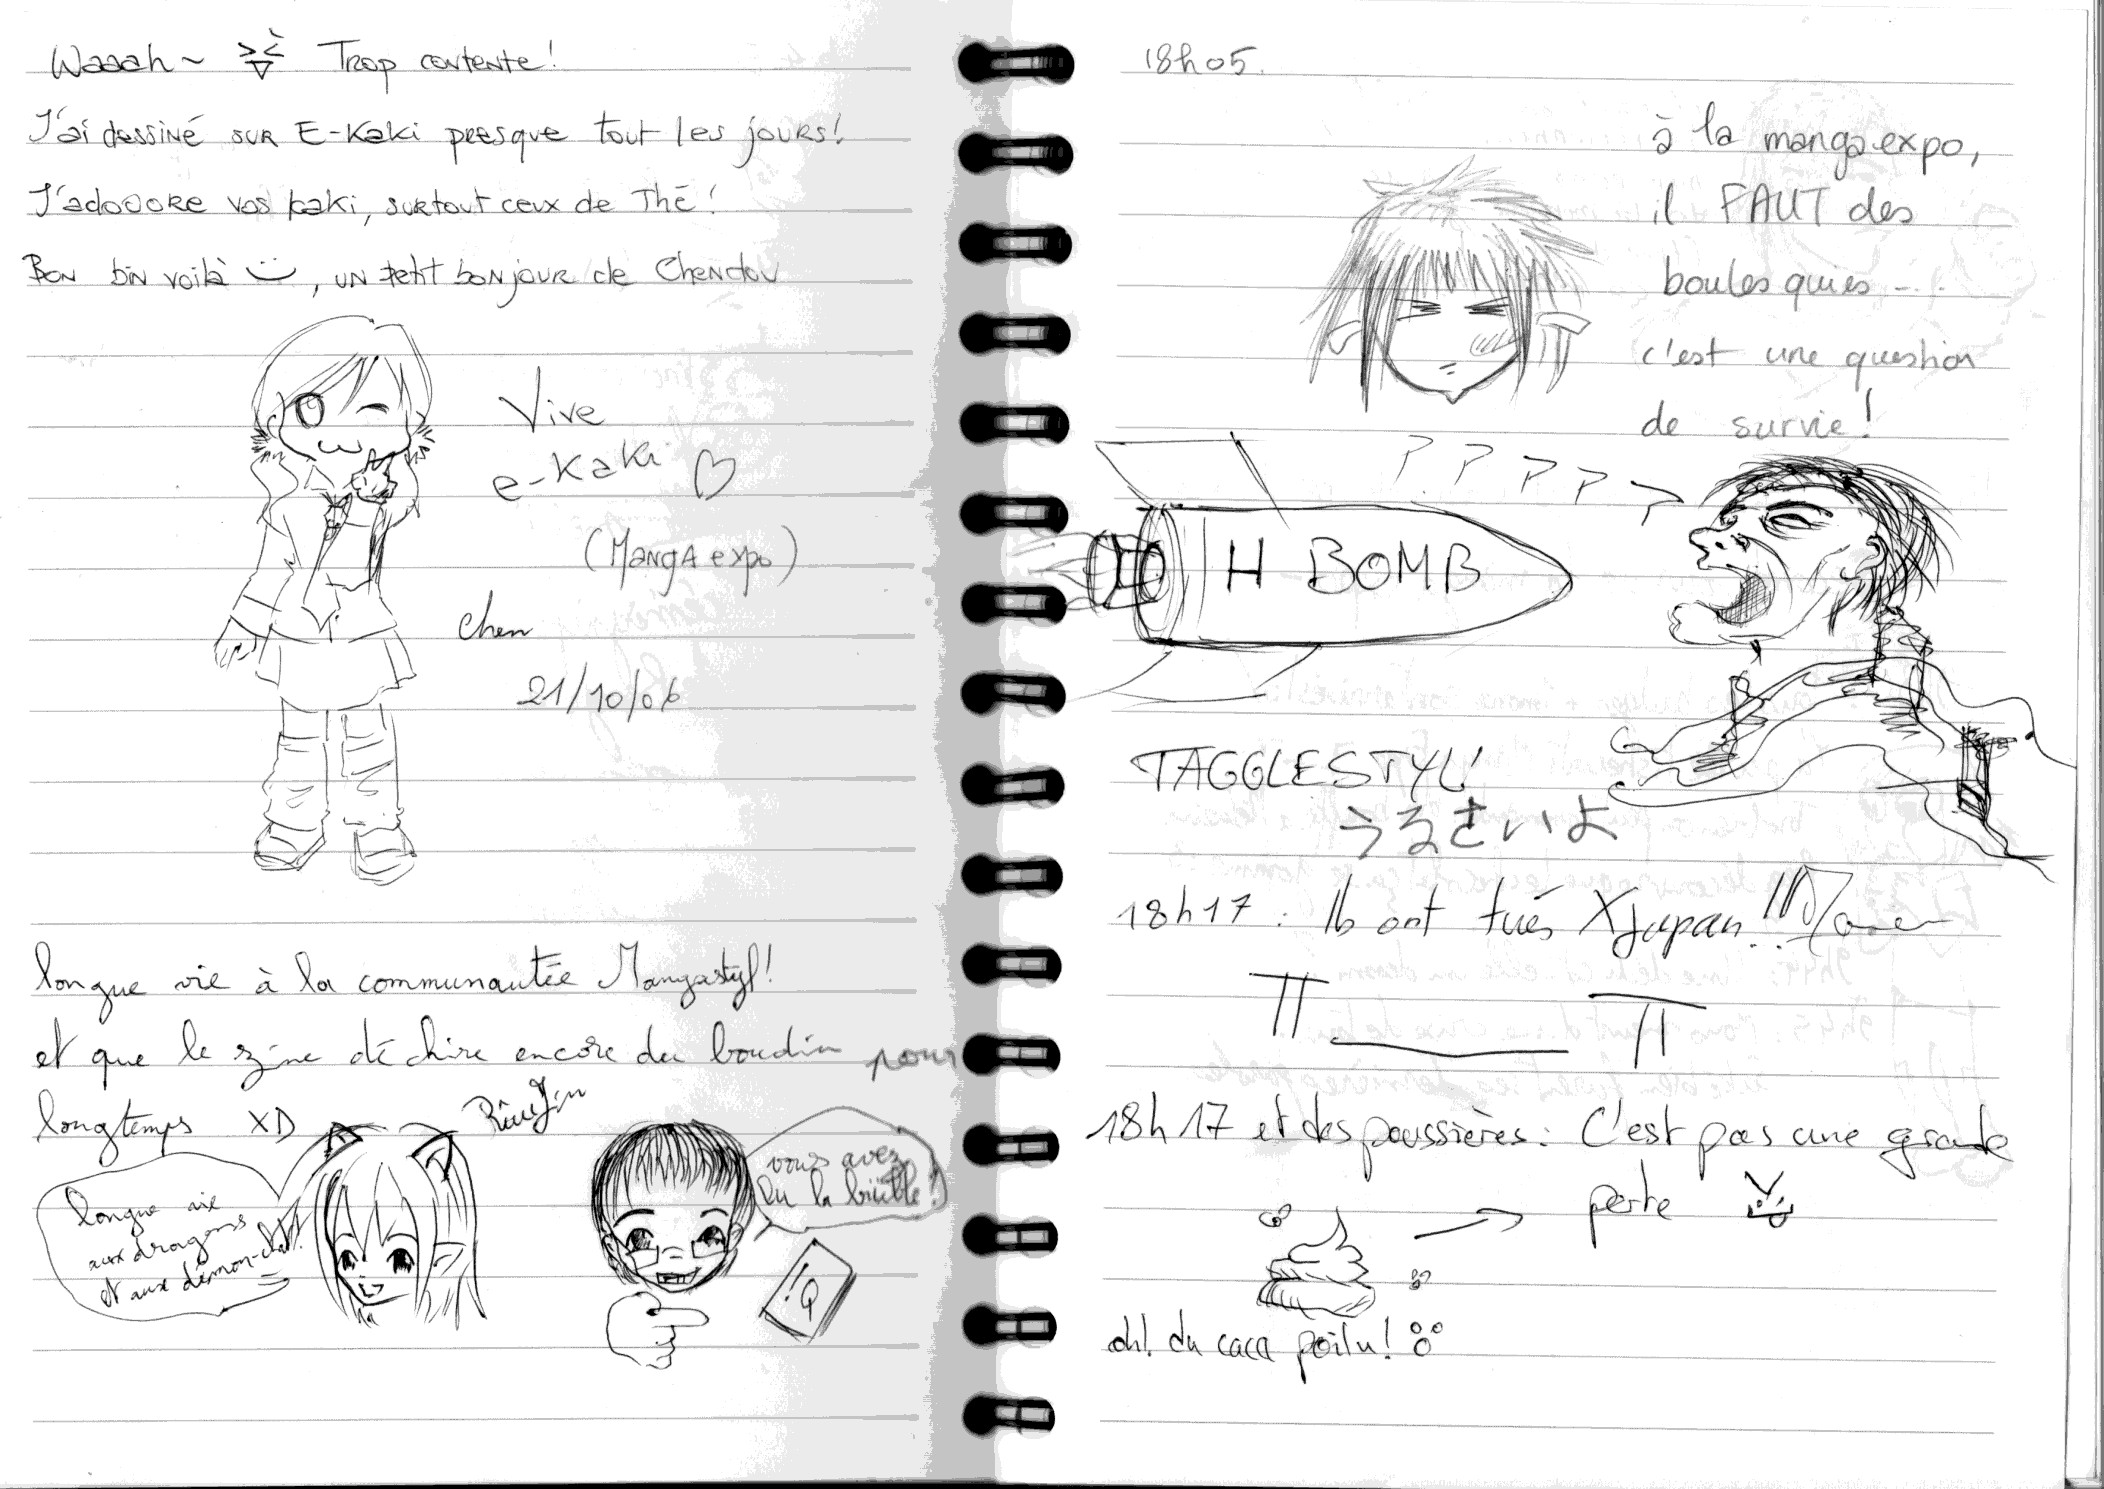 Waaah ~ Trop contente !
J'ai dessiné sur E-Kaki presque tout les jours !
J'adoooore vos kaki, surtout ceux de Thé !
Bon bin voilà, un petit bonjour de Chendou
Vive
e-kaki ♡
(Manga expo)
Chen
21/10/06
longue vie à la communautée Mangastyl !
et que le zine déchire encore du boudin pour
longtemps XD
longue vie
aux dragons
et aux démon-chat !
vous avez
lu la
!Q
18h05.
à la manga expo,
il FAUT des
boules quies ...
c'est une question
de survie !
? ? ? ?
H BOMB
TAGGLESTYL !
うるさいよ
18h17 : Ils ont tués XJapan !!!
TT___TT
18h17 et des poussières : C'est pas une grande
perte
oh! du caca poilu !